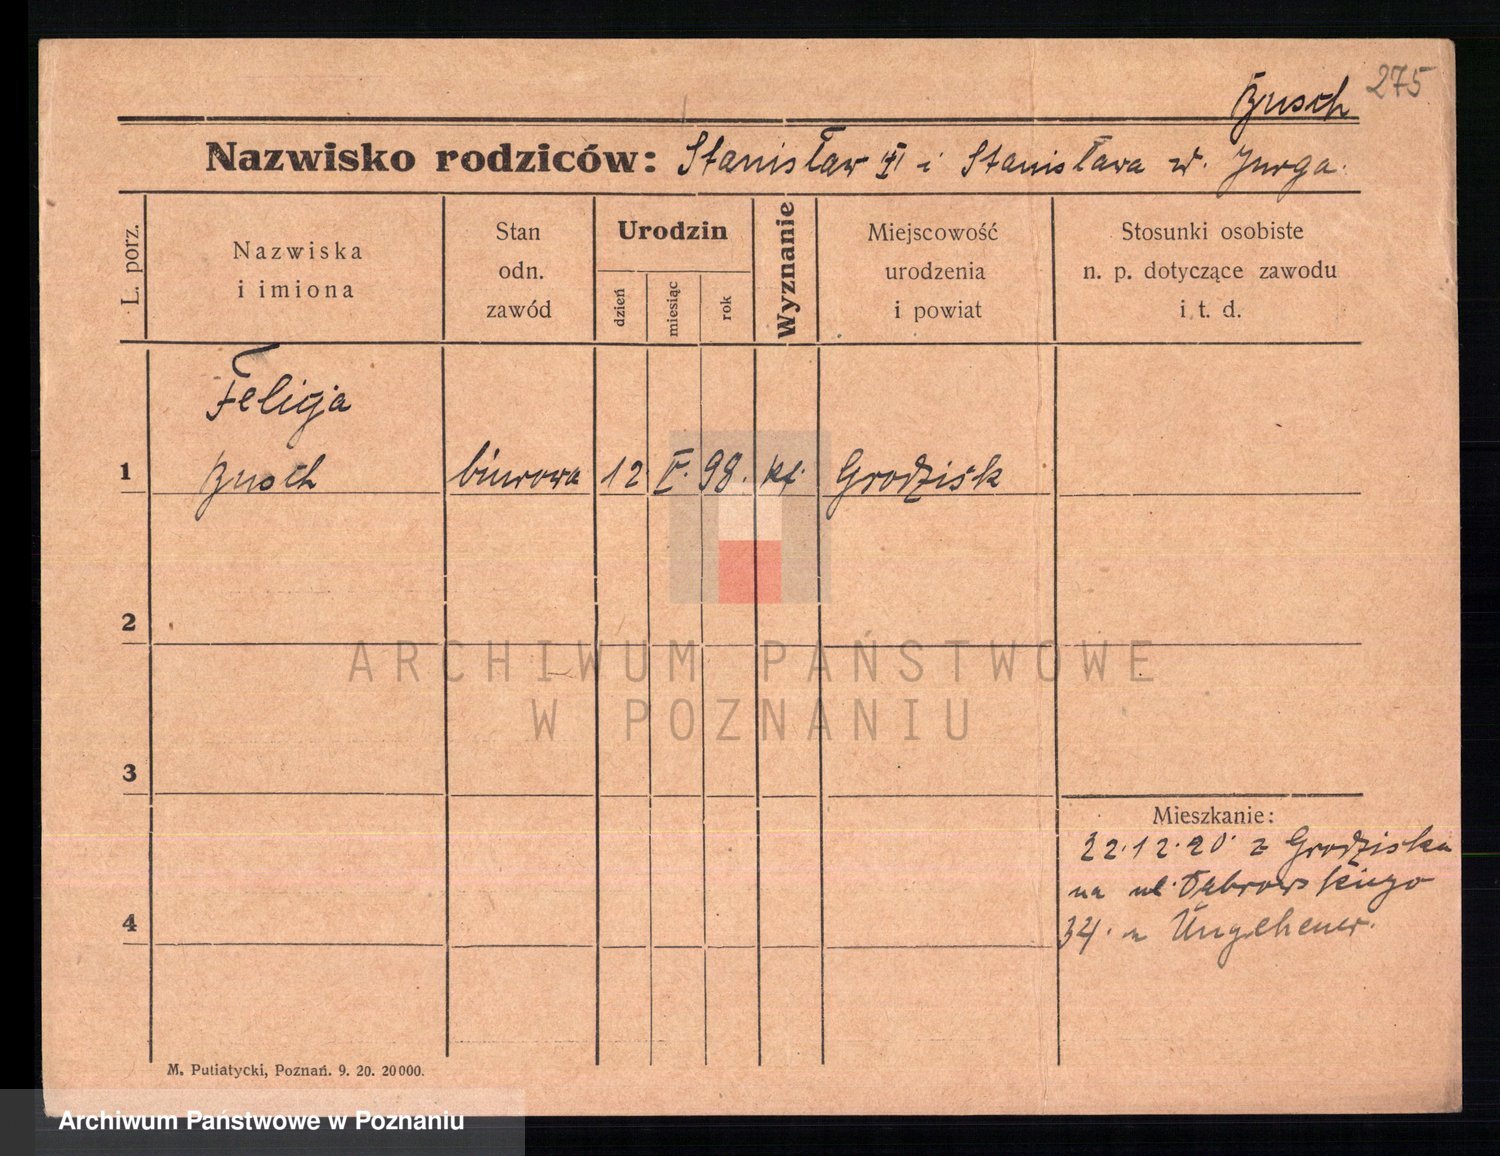 Busch 275
Nazwisko rodziców: Stanisław VI i Stanisława z d. Jurga.
L. porz.
Nazwiska
i imiona
Stan
odn.
zawód
Urodzin
dzień
miesiąc
rok
Wyznanie
Miejscowość
urodzenia
i powiat
Stosunki osobiste
n. p. dotyczące zawodu
i t. d.
Felicja
1 Busch biurowa 12 V. 98. kt. Grodzisk
2
3
4
Mieszkanie:
22.12.20. z Grodziska
na ul. Dąbrowskiego
34. u Ungeheuer.
M. Putiatycki, Poznań. 9. 20. 20000.
ARCHIWUM PAŃSTWOWE
W POZNANIU
Archiwum Państwowe w Poznaniu